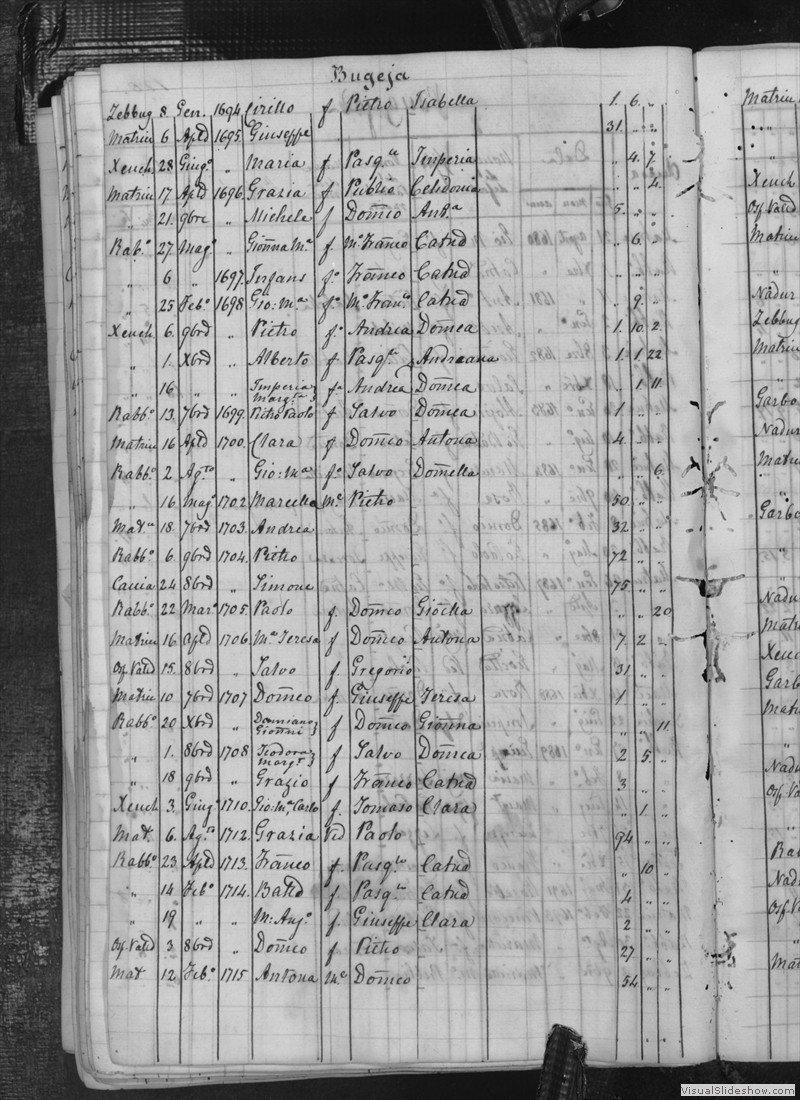 Bugeja
Zebbug 8. Gen. 1694 Cirillo f Pietro Isabella 1. 6. "
Matriu 6 Apld 1695. Giuseppe 31. " "
Xeuch. 28 Giug.o " Maria f. Pasq.le Imperia " 4. 7.
Matriu 17. Apld 1696. Grazia f Publio Celidonia " " 4.
" 21. 9bre " Michele f Domco Ant.a 5. " "
Rab.o 27. Mag.o " Gionna M.a f M.o Franco Catnd " 6. "
" 6 " 1697. Infans f.o Franco Catnd " " "
" 25 Feb.o 1698 Gio: M.a f.o M.o Fran.co Catnd " 9. "
Xeuch. 6. 9brd " Pietro f.o Andrea Domca 1. 10. 2.
" 1. Xbrd " Alberto f Pasq.le Andreana 1. 1. 22
" 16 " " Imperia Marg.ta f.a Andrea Domca " 1. 11.
Rabb.o 13. 7brd 1699. Pietro Paolo f Salvo Domca 1. " "
Matriu 16 Apld 1700. Clara f Domco Antona 4. " "
Rabb.o 2. Ag.to " Gio: M.a f.o Salvo Domella " " 6.
" 16 mag.o 1702. Marcella M.e Pietro 50. " "
Mat.u 18. 7brd 1703. Andrea 32. " "
Rabb.o 6 9brd 1704. Pietro 72 " "
Caccia 24 8brd " Simone 75. " "
Rabb.o 22 Mar.o 1705. Paolo f. Domco Giocha " " 20
Matriu 16. Apld 1706. M.a Teresa f Domco Antona 7. 2. "
Osp. Valld 15. 8brd " Salvo f. Gregorio 31 " "
Matriu 10 7brd 1707. Domco f. Giuseppe Teresa 1 " "
Rabb.o 20 Xbrd " Damiano Gionni f Domco Gionna " " 11.
" 1. 8brd 1708 Teodora Marg.ta f Salvo Domca 2 5. "
" 18 9brd " Grazio f Franco Catnd 3 " "
Xeuch 3. Giug.o 1710. Gio: M.a Carlo f. Tomaso Clara " 1. "
Mat. 6. Ag.to 1712. Grazia Vid Paolo 94 " "
Rabb.o 23. Apld 1713. Franco f. Pasq.le Catnd " 10 "
" 14 Feb.o 1714. Battd f. Pasq.le Catnd 4 " "
" 19 " " M: Ang.a f. Giuseppe Clara 2 " "
Osp. Valld 3. 8brd " Domco f Pietro 27 " "
Mat 12. Feb.o 1715 Antona M.e Domco 54 " "
Matriu
"
"
Xeuch
Osp Valld
Matriu
"
Nadur
Zebbug
Matriu
"
Garbo
Nadur
Matriu
"
Garbo
Nadur
Matriu
Xeuch
Garbo
Matri
"
Nadur
Osp. Va
"
Rab
Nadu
Osp. Va
"
Mat
VisualSlideshow.com